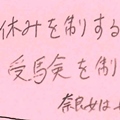 休みを制する
受験を制
奈良女は